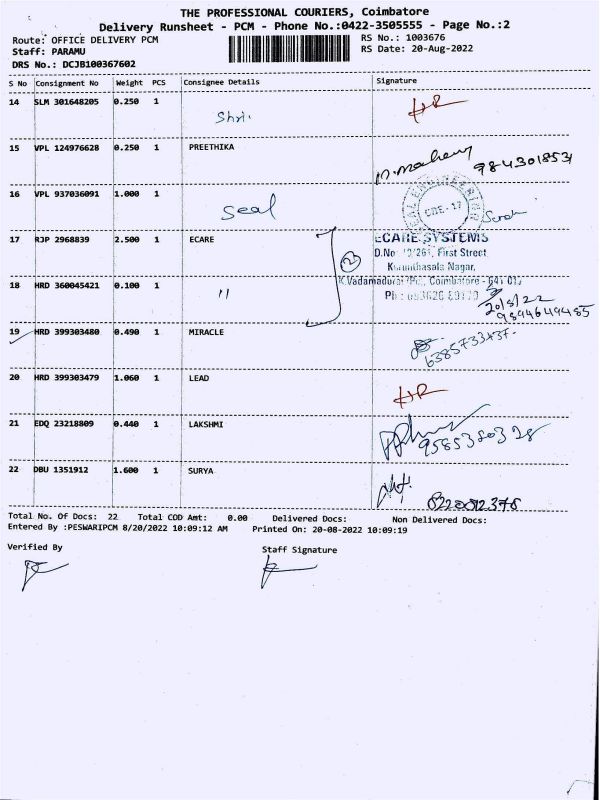 THE PROFESSIONAL COURIERS, Coimbatore
Delivery Runsheet - PCM - Phone No.:0422-3505555 - Page No.:2
Route: OFFICE DELIVERY PCM RS No.: 1003676
Staff: PARAMU RS Date: 20-Aug-2022
DRS No.: DCJB100367602
S No Consignment No Weight PCS Consignee Details Signature
14 SLM 301648205 0.250 1 Shri. HR
15 VPL 124976628 0.250 1 PREETHIKA
16 VPL 937036091 1.000 1 Seal
17 RJP 2968839 2.500 1 ECARE 2 ECARE SYSTEMS
First Street
Nagar,
18 HRD 360045421 0.100 1 " Coimbatore
20/8/22
9894649485
19 HRD 399303480 0.490 1 MIRACLE
20 HRD 399303479 1.060 1 LEAD HR
21 EDQ 23218809 0.440 1 LAKSHMI
22 DBU 1351912 1.600 1 SURYA
Total No. Of Docs: 22 Total COD Amt: 0.00 Delivered Docs: Non Delivered Docs:
Entered By :PESWARIPCM 8/20/2022 10:09:12 AM Printed On: 20-08-2022 10:09:19
Verified By Staff Signature